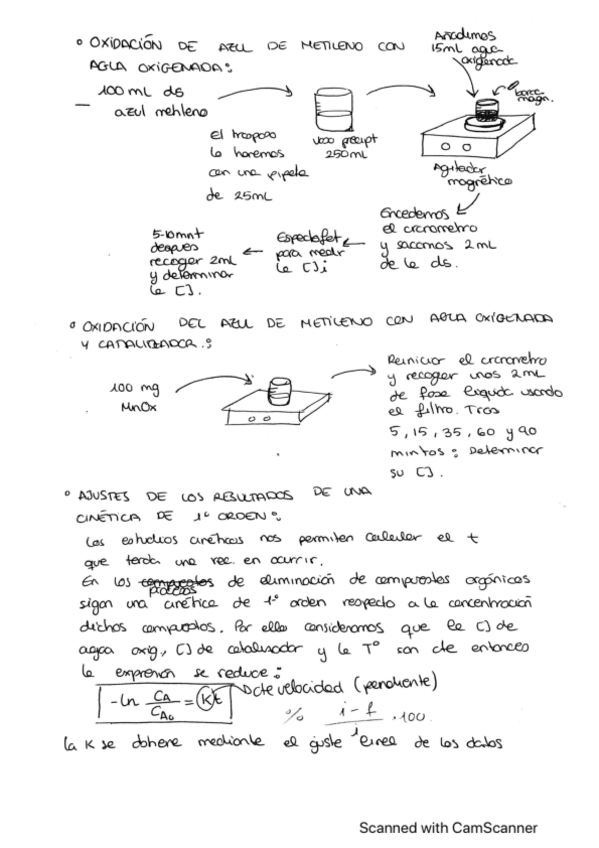 ° OXIDACIÓN DE AZUL DE METILENO CON
AGUA OXIGENADA:
Añadimos
15mL agua
oxigenada
100 mL ds
azul metileno
el traspaso
lo haremos
con una pipeta
de 25mL
vaso precipt
250mL
barra
magn.
Agitador
magnético
Encedemos
el cronometro
y sacamos 2mL
de la ds.
Espectofot
para medir
la []i
5-10mnt
despues
recoger 2mL
y determinar
la [].
° OXIDACIÓN DEL AZUL DE METILENO CON AGUA OXIGENADA
Y CATALIZADOR:
100 mg
MnOx
Reiniciar el cronometro
y recoger unos 2mL
de fase liquida usando
el filtro. Tras
5, 15, 35, 60 y 90
mintos: Determinar
su [].
° AJUSTES DE LOS RESULTADOS DE UNA
CINÉTICA DE 1º ORDEN:
Los estudios cinéticos nos permiten calcular el t
que tarda una rec. en ocurrir.
En los compuestos procesos de eliminación de compuestos orgánicos
sigan una cinética de 1º orden respecto a la concentración
dichos compuestos. Por ello consideramos que la [] de
agua oxig., [] de catalizador y la Tº son cte entonces
la expresión se reduce:
-ln CA/CAo = Kt → cte velocidad (pendiente)
% i-f/i · 100.
la K se obtiene mediante el ajuste lineal de los datos
Scanned with CamScanner